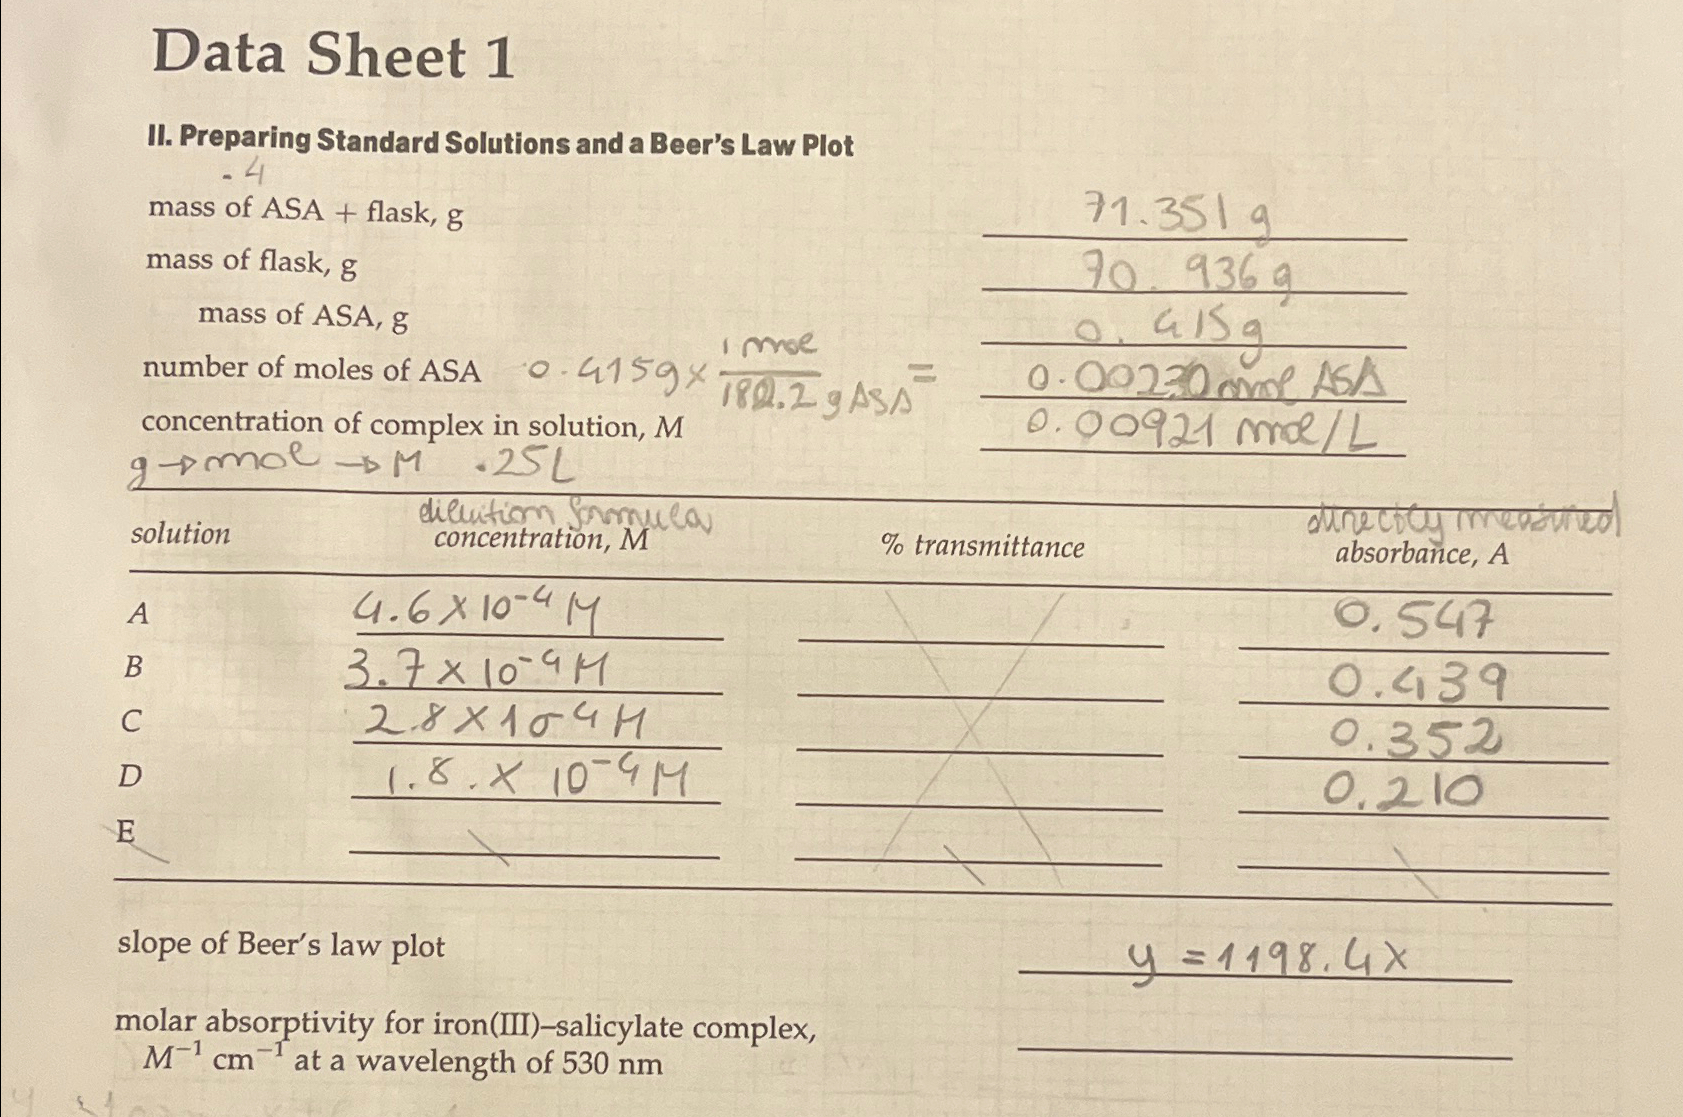 Data Sheet 1
II. Preparing Standard Solutions and a Beer's Law Plot
- 4
mass of ASA + flask, g 71.351 g
mass of flask, g 70.936 g
mass of ASA, g 0.415g
number of moles of ASA 0.415g × 1 mol / 180.2 g ASA = 0.00230 mol ASA
concentration of complex in solution, M 0.00921 mol/L
g → mol → M .25L
dilution formula directly measured
solution concentration, M % transmittance absorbance, A
A 4.6 × 10⁻⁴ M 0.547
B 3.7 × 10⁻⁴ M 0.439
C 2.8 × 10⁻⁴ M 0.352
D 1.8 . × 10⁻⁴ M 0.210
E
slope of Beer's law plot y = 1198.4x
molar absorptivity for iron(III)–salicylate complex,
M⁻¹ cm⁻¹ at a wavelength of 530 nm